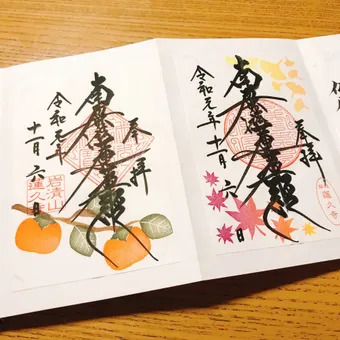 奉拝
南無妙法蓮華経
令和元年
十一月六日
蓮久寺
奉拝
南無妙法蓮華経
令和元年
十一月六日
岩清山
蓮久寺